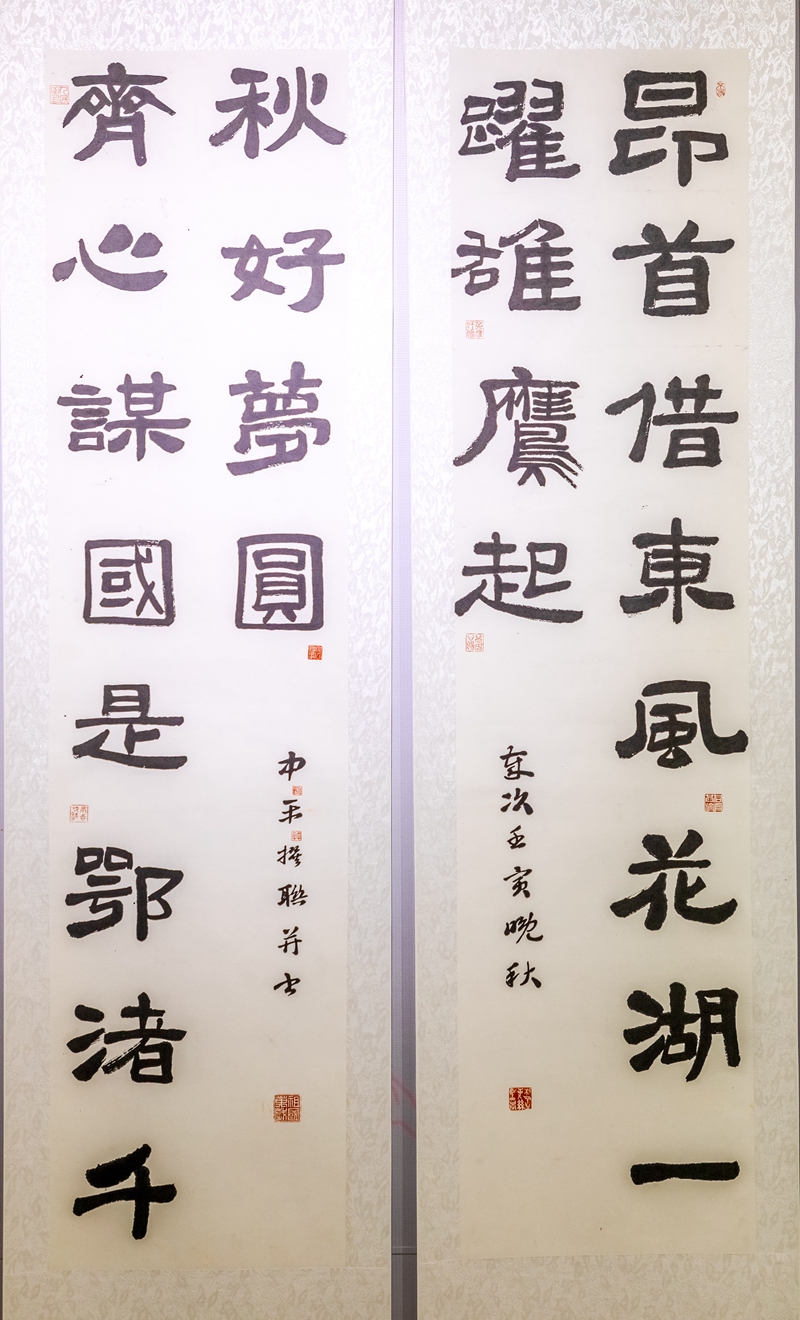 昂首借東風花湖一
躍雄鷹起
歲次壬寅晚秋
齊心謀國是鄂渚千
秋好夢圓
中平撰聯并書